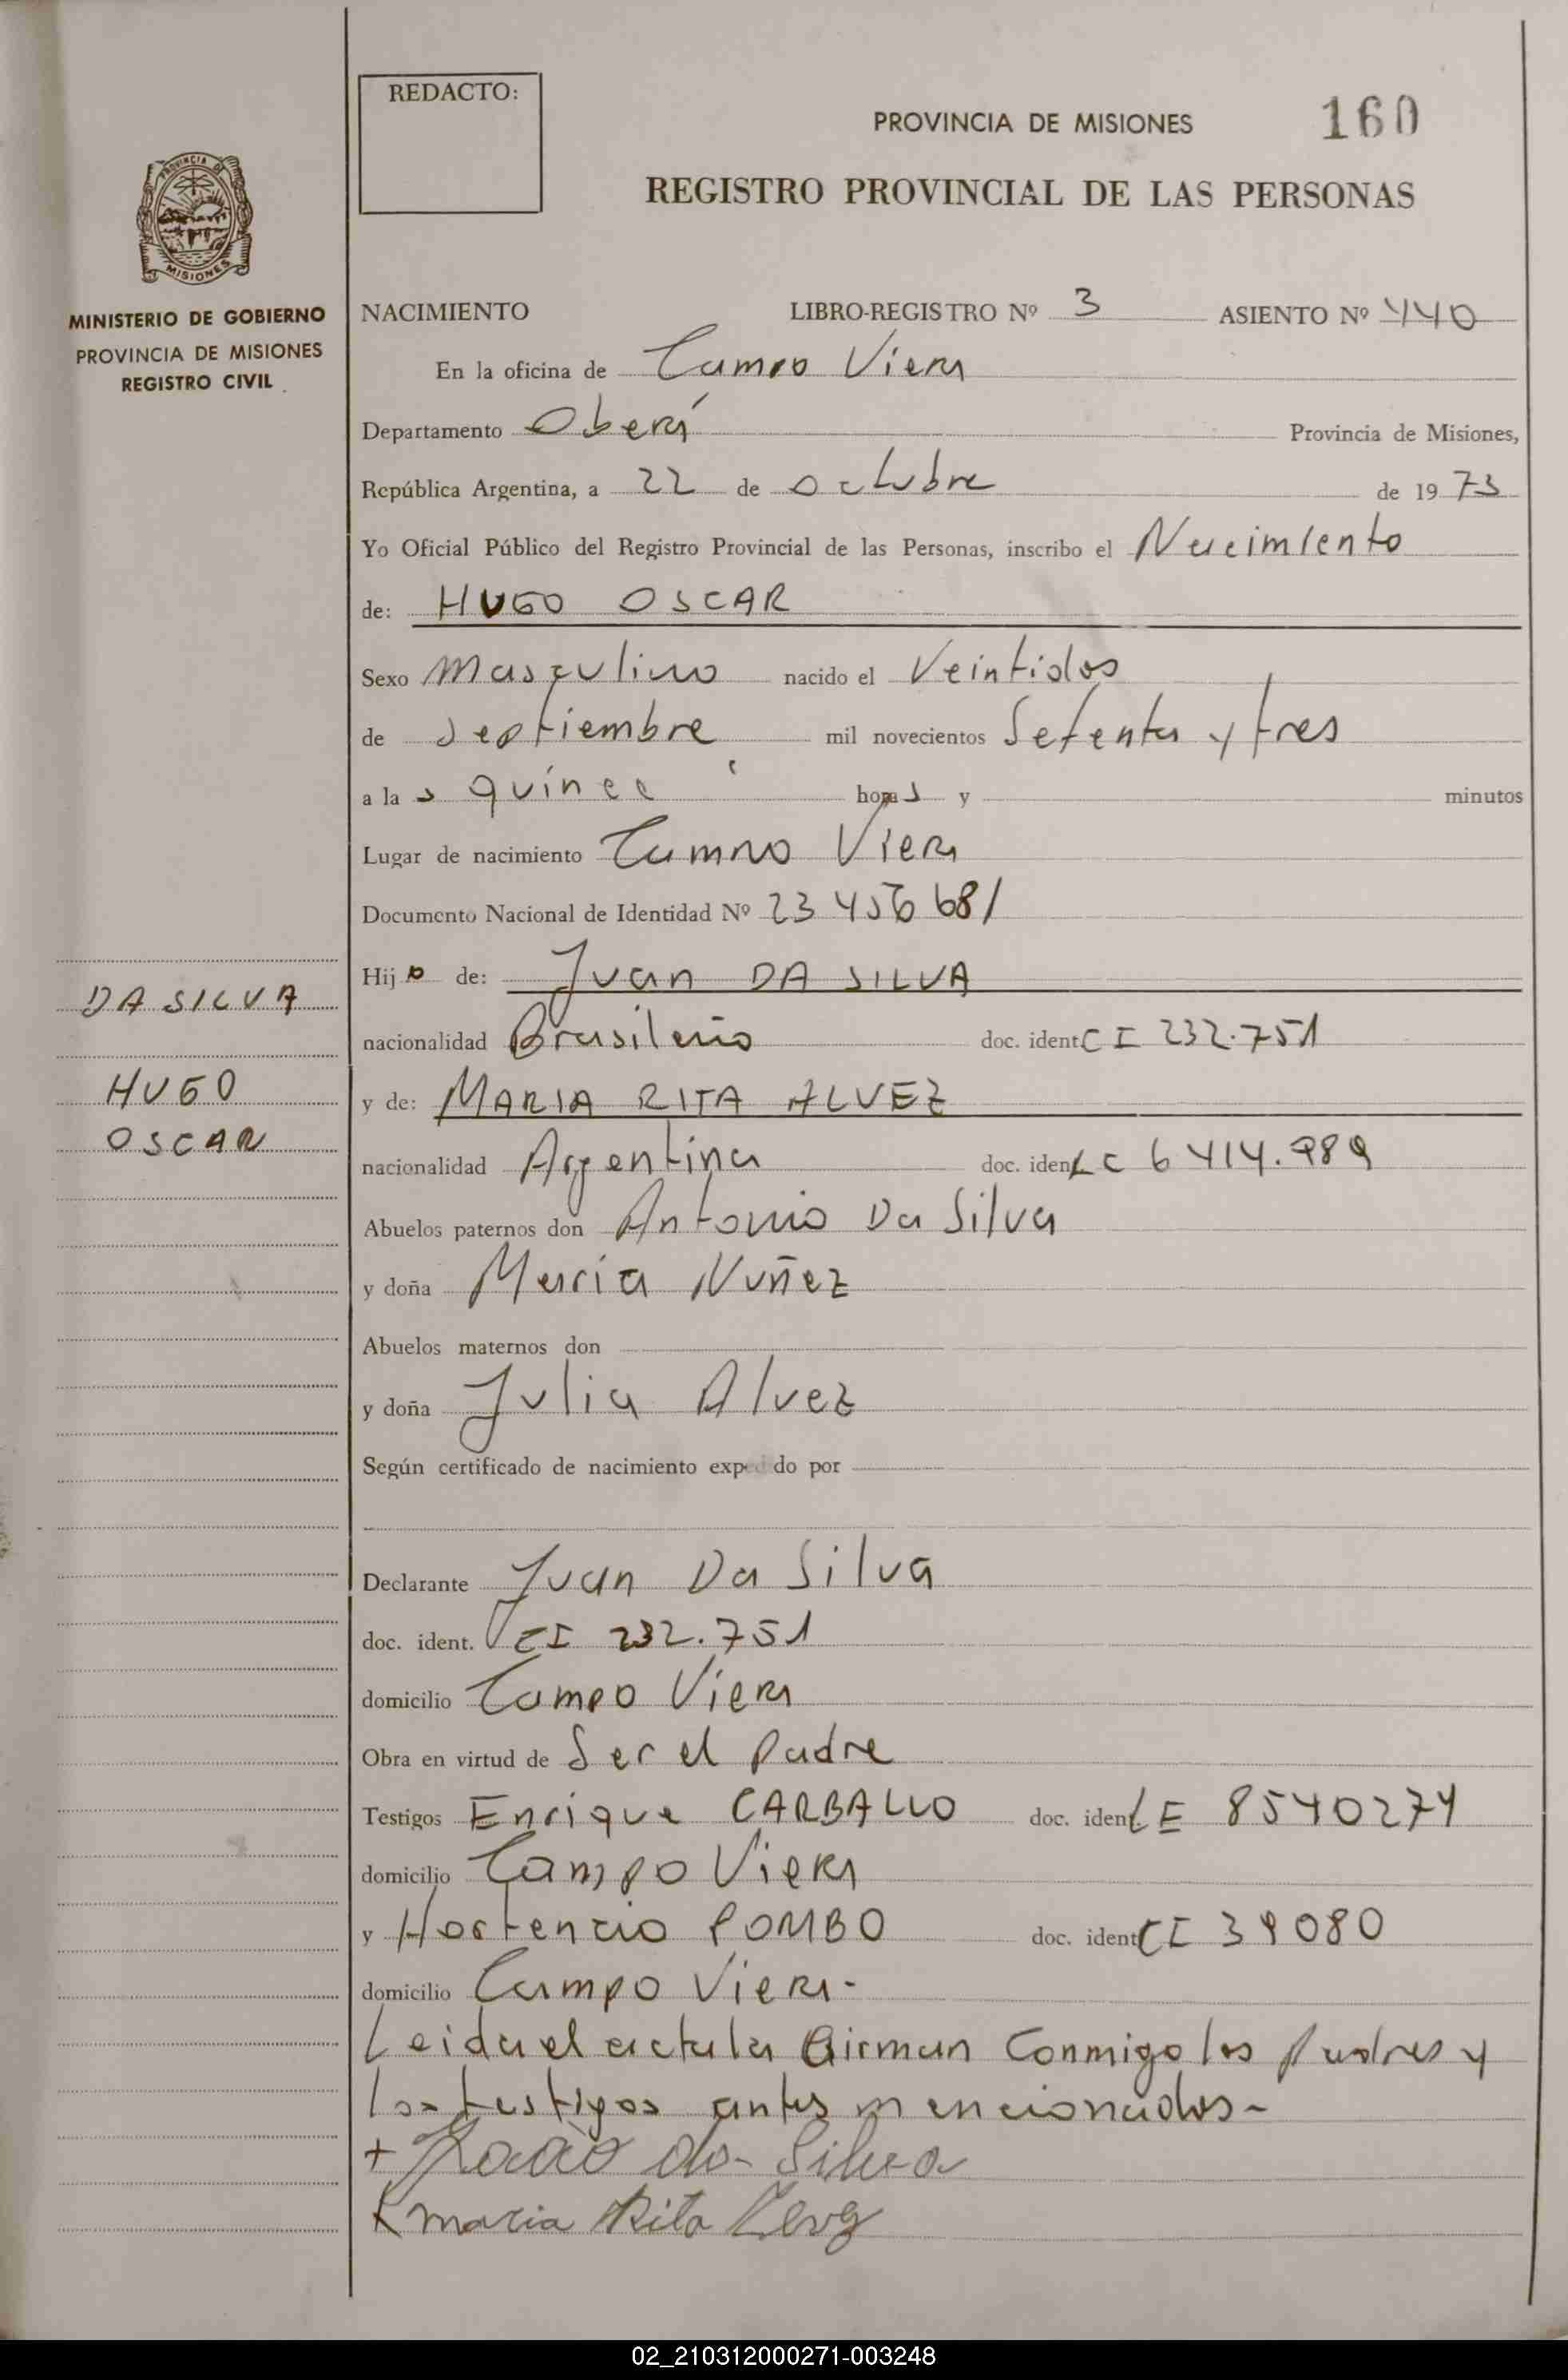 REDACTO:
PROVINCIA DE MISIONES
160
REGISTRO PROVINCIAL DE LAS PERSONAS
PROVINCIA DE
MISIONES
MINISTERIO DE GOBIERNO
PROVINCIA DE MISIONES
REGISTRO CIVIL
NACIMIENTO LIBRO-REGISTRO Nº 3 ASIENTO Nº 440
En la oficina de Campo Viera
Departamento Oberá Provincia de Misiones,
República Argentina, a 22 de octubre de 1973
Yo Oficial Público del Registro Provincial de las Personas, inscribo el Nacimiento
de: HUGO OSCAR
Sexo Masculino nacido el Veintidos
de Septiembre mil novecientos Setenta y tres
a las quince horas y minutos
Lugar de nacimiento Campo Viera
Documento Nacional de Identidad Nº 23 456 681
DA SILVA
HUGO
OSCAR
Hijo de: Juan DA SILVA
nacionalidad Brasileño doc. ident CI 232.751
y de: MARIA RITA ALVEZ
nacionalidad Argentina doc. iden LC 6414.989
Abuelos paternos don Antonio Da Silva
y doña Maria Nuñez
Abuelos maternos don
y doña Julia Alvez
Según certificado de nacimiento expedido por
Declarante Juan Da Silva
doc. ident. CI 232.751
domicilio Campo Viera
Obra en virtud de Ser el Padre
Testigos Enrique CARBALLO doc. iden LE 8540274
domicilio Campo Viera
y Hortencio POMBO doc. ident CI 39080
domicilio Campo Viera-
Leida el acta la Firman Conmigo los Padres y
los testigos antes mencionados-
+ João da Silva
x maria Rita
02_210312000271-003248